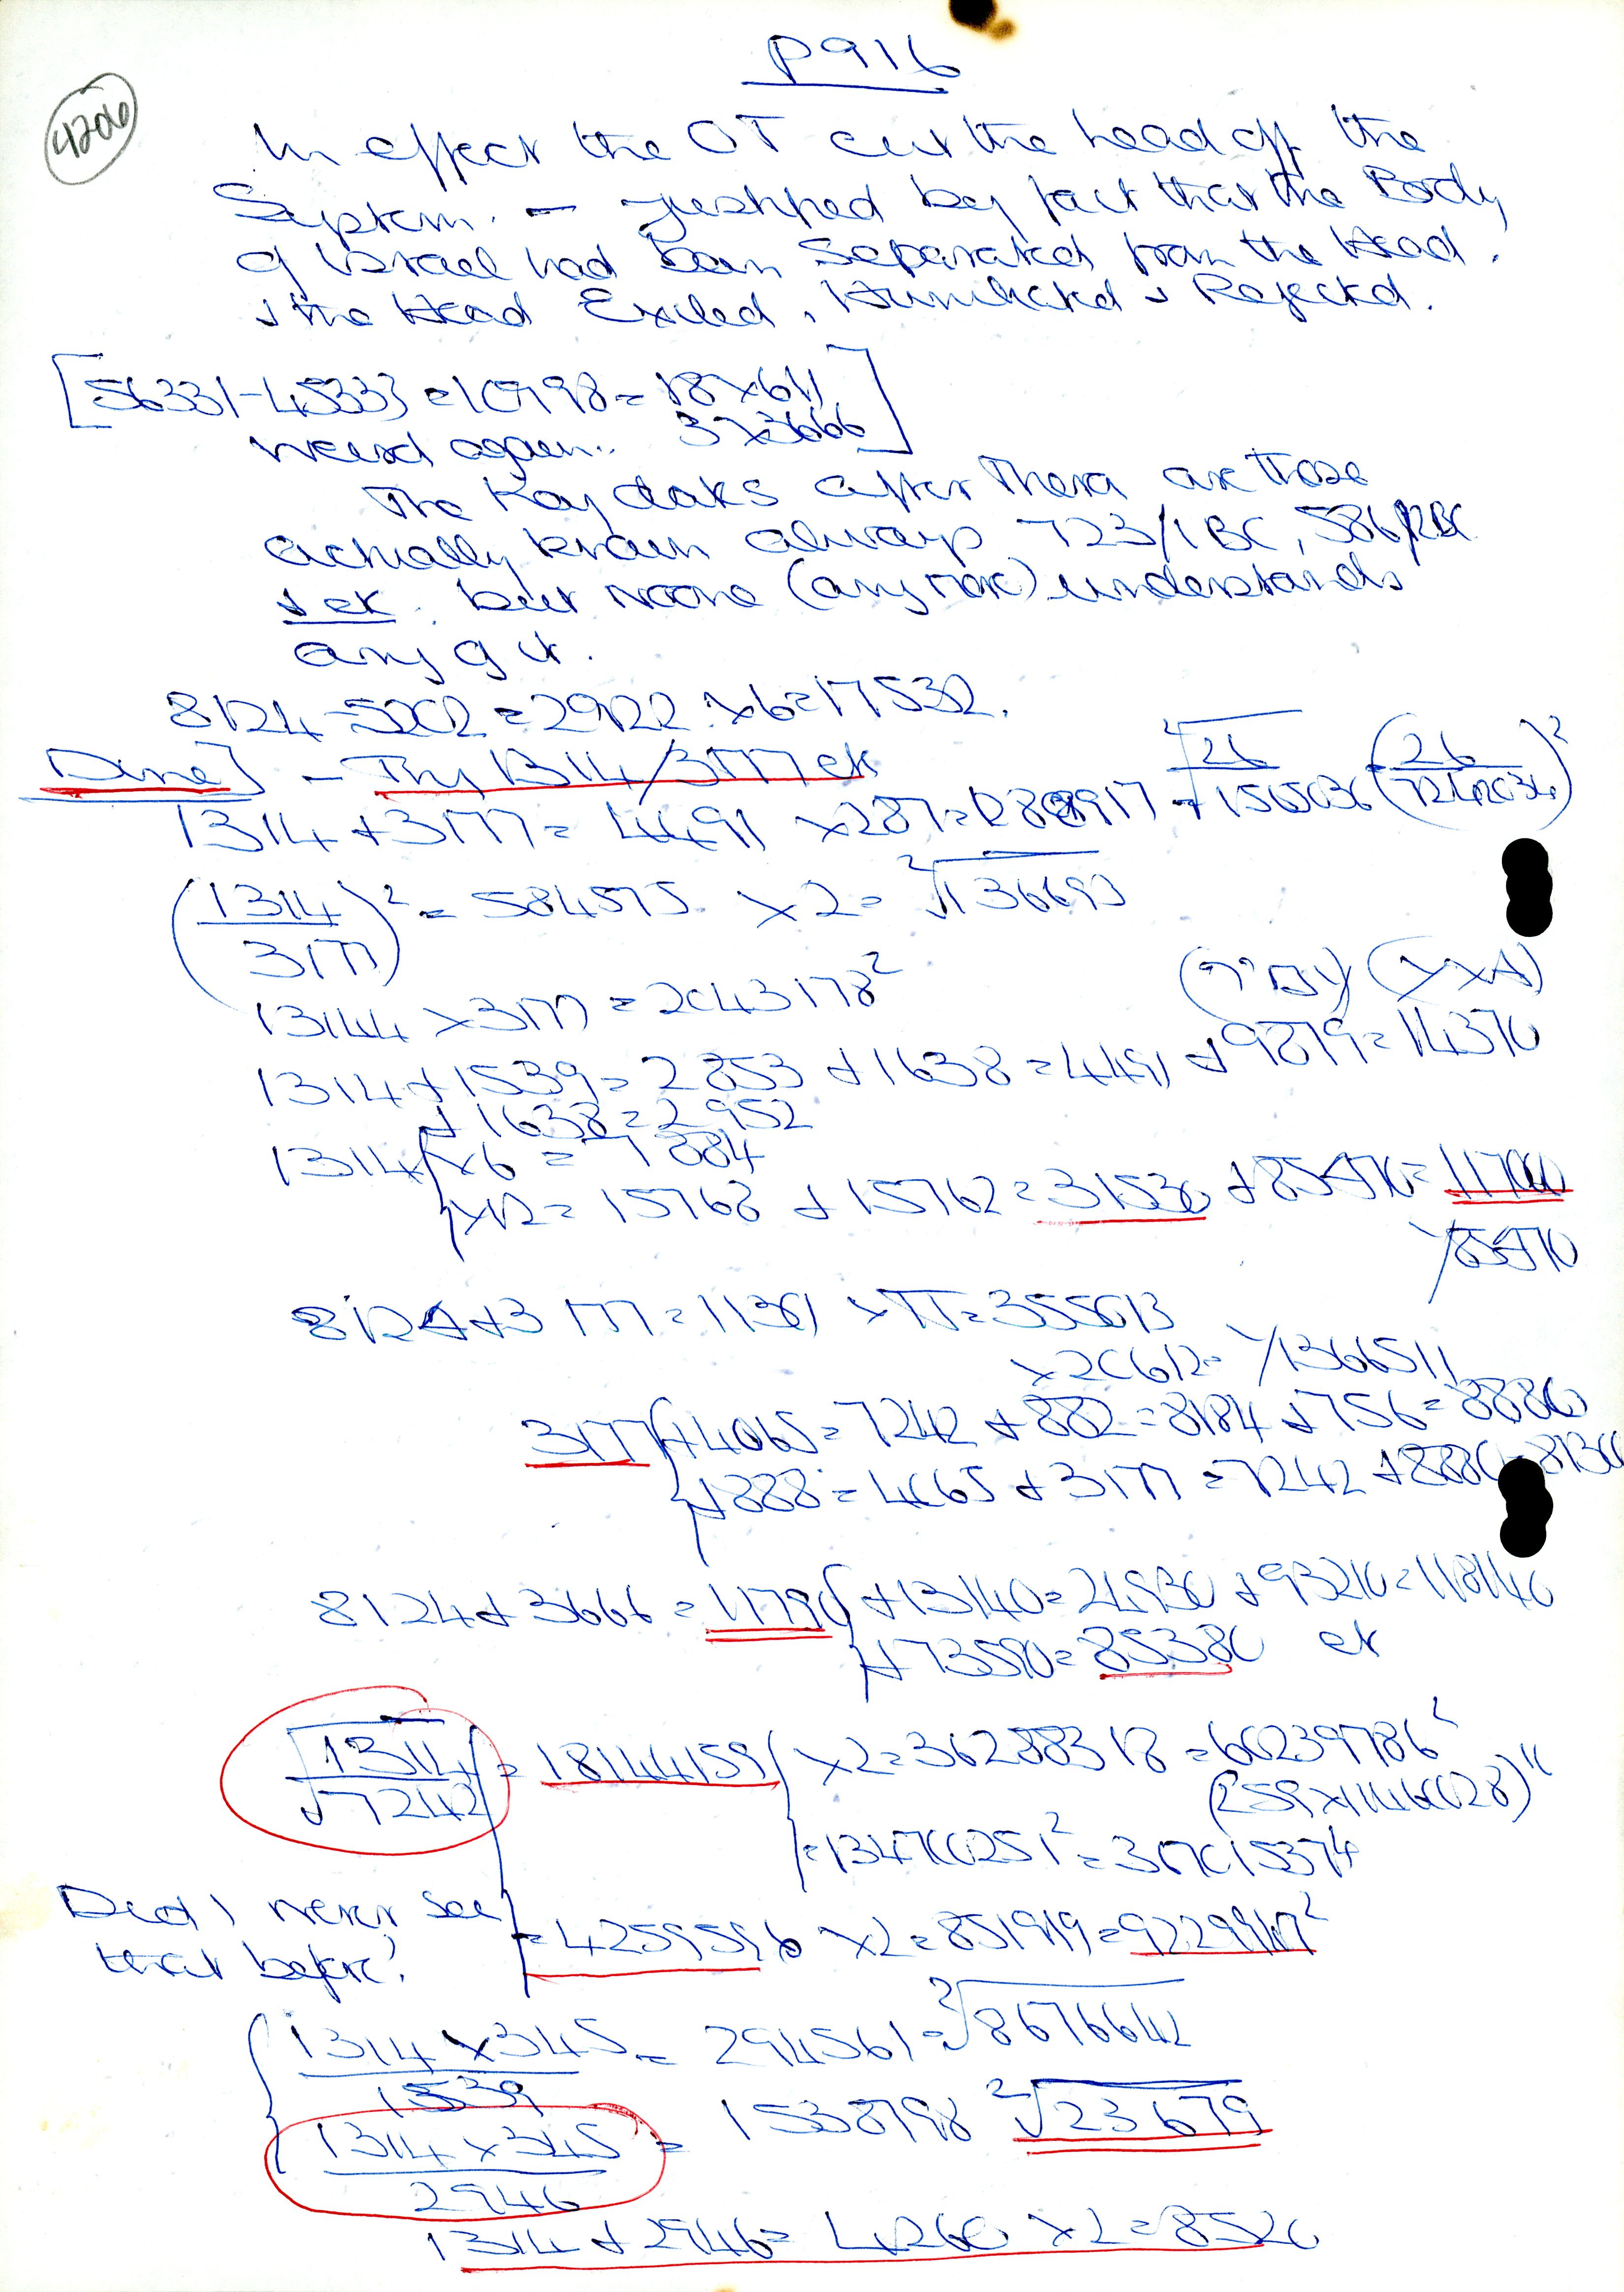 P916
4206
In effect the OT cut the head off the
System. - justified by fact that the Body
of Israel had been Separated from the Head.
& the Head Exiled, Humiliated & Rejected.
[56331-45333 = 10998 = 18x611
3x3666]
Weird again..
The Key dates after Thera are those
actually known always 723/1 BC, 586/2BC
& etc. but noone (anymore) understands
any of it.
8124-5202 = 2922 x6=17532.
Done] - Try 1314/3177 etc
1314+3177= 4491 x287=
(1314/3177)² = 584575 x2= ²√136693
1314 x3177 = 2043178²
1314+1539=2853 +1638=4491 +9879=14370
+1638=2952
1314 {x6 = 7884
x12= 15768 + 15762=31530 +85470=117000
/85470
8124+3177=11301 xπ=355013
x20612= /1366511
3177 {+4065=7242 +882=8184 +756=8880
+888=4065 +3177=7242 +8880
8124+3666=11790 {+13140=24930 +93210=118140
+73590=85380 etc
1314/√7242 = 18144159 {x2=36288318 =60239786²
=134700251²=367015374
Did I never see
that before?
=4259596 x2=851919=9229947²
{1314x345/1539 = 294561=²√8676642
1314x345/2946 = 1538798 ²√23679
1314+2946= 4260 x2=8520